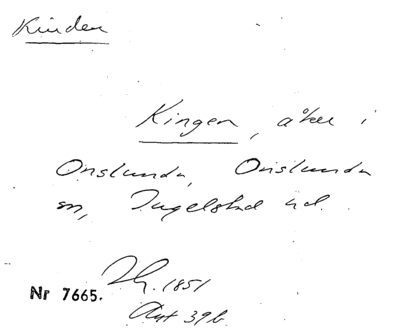 Kinden
Kingen, åker i
Onslunda, Onslunda
sn, Ingelstad hd.
Lh. 1851
Nr 7665.
Akt 39b.